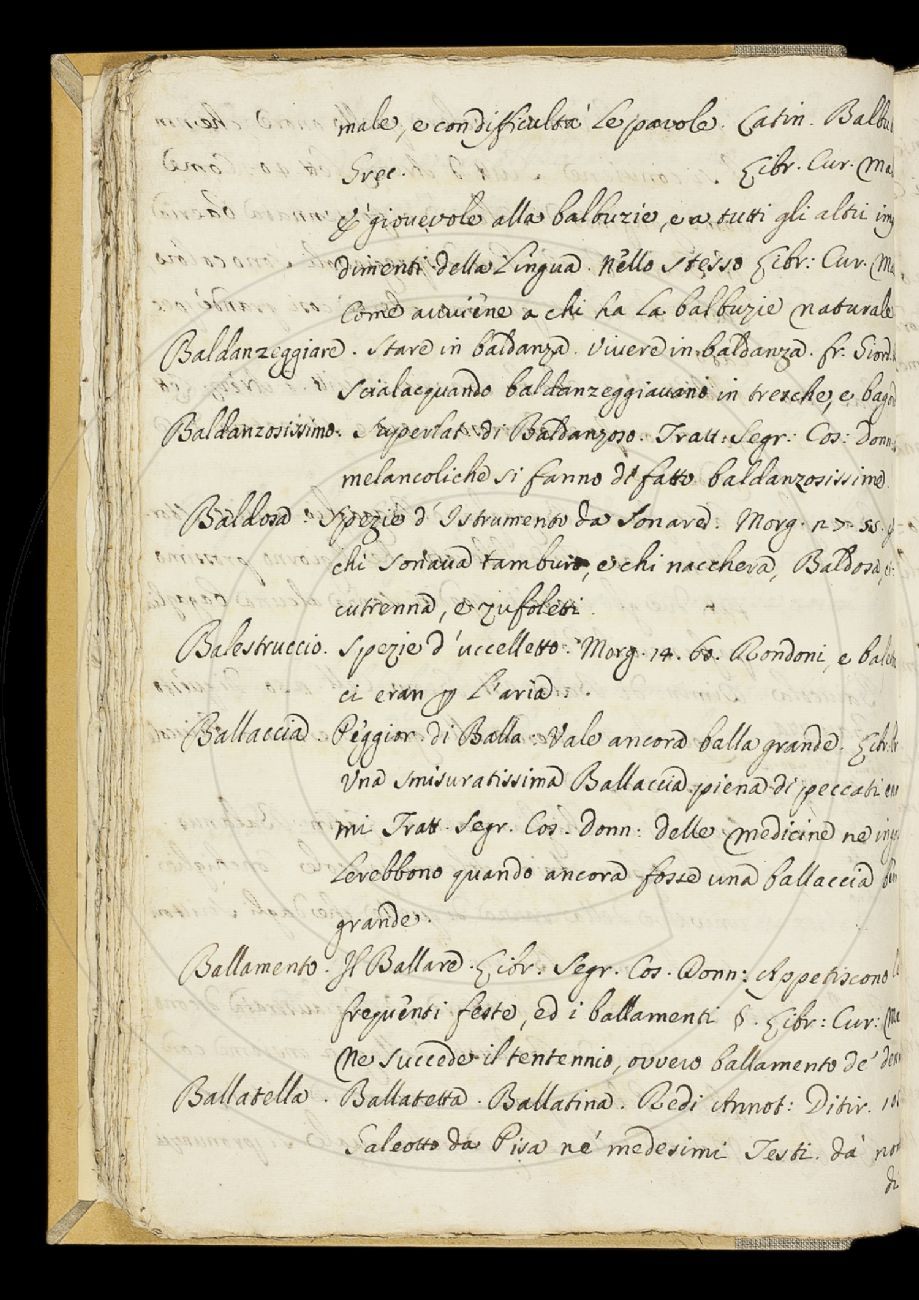 male, e con difficultà le parole. Latin. Balbu
Grec. Libr. Cur. Ma
E' giovevole alla balbuzie, e a tutti gli altri im
dimenti della Lingua. Nello stesso Libr: Cur. Ma
Come avviene a chi ha la balbuzie naturale
Baldanzeggiare. Stare in baldanza. Vivere in baldanza. fr. Giord.
Scialacquando baldanzeggiavano in tresche, e bagor
Baldanzosissimo. Superlat. di Baldanzoso. Tratt. Segr: Cos: Donn:
melancoliche si fanno di fatto baldanzosissime
Baldosa. Spezie d'Istrumento da Sonare. Morg. 27. 55.
chi sonava tamburo, e chi nacchera, Baldosa, e
cutrenna, e zufoletti.
Balestruccio. Spezie d'uccelletto. Morg. 14. 60. Rondoni, e balest
ci eran p L'aria.
Ballaccia. Peggior. di Balla. Vale ancora balla grande. Libr.
Una smisuratissima Ballaccia piena di peccati en
mi Tratt. Segr. Cos. Donn: delle medicine ne ingo
lerebbono quando ancora fosse una ballaccia ben
grande.
Ballamento. Il Ballare. Libr. Segr. Cos. Donn: Appetiscono le
frequenti feste, ed i ballamenti §. Libr: Cur: Ma
Ne succede il tentennio, ovvero ballamento de' den
Ballatella. Ballatetta. Ballatina. Redi Annot: Ditir.
Galeotto da Pisa ne' medesimi Testi. dà nom
di